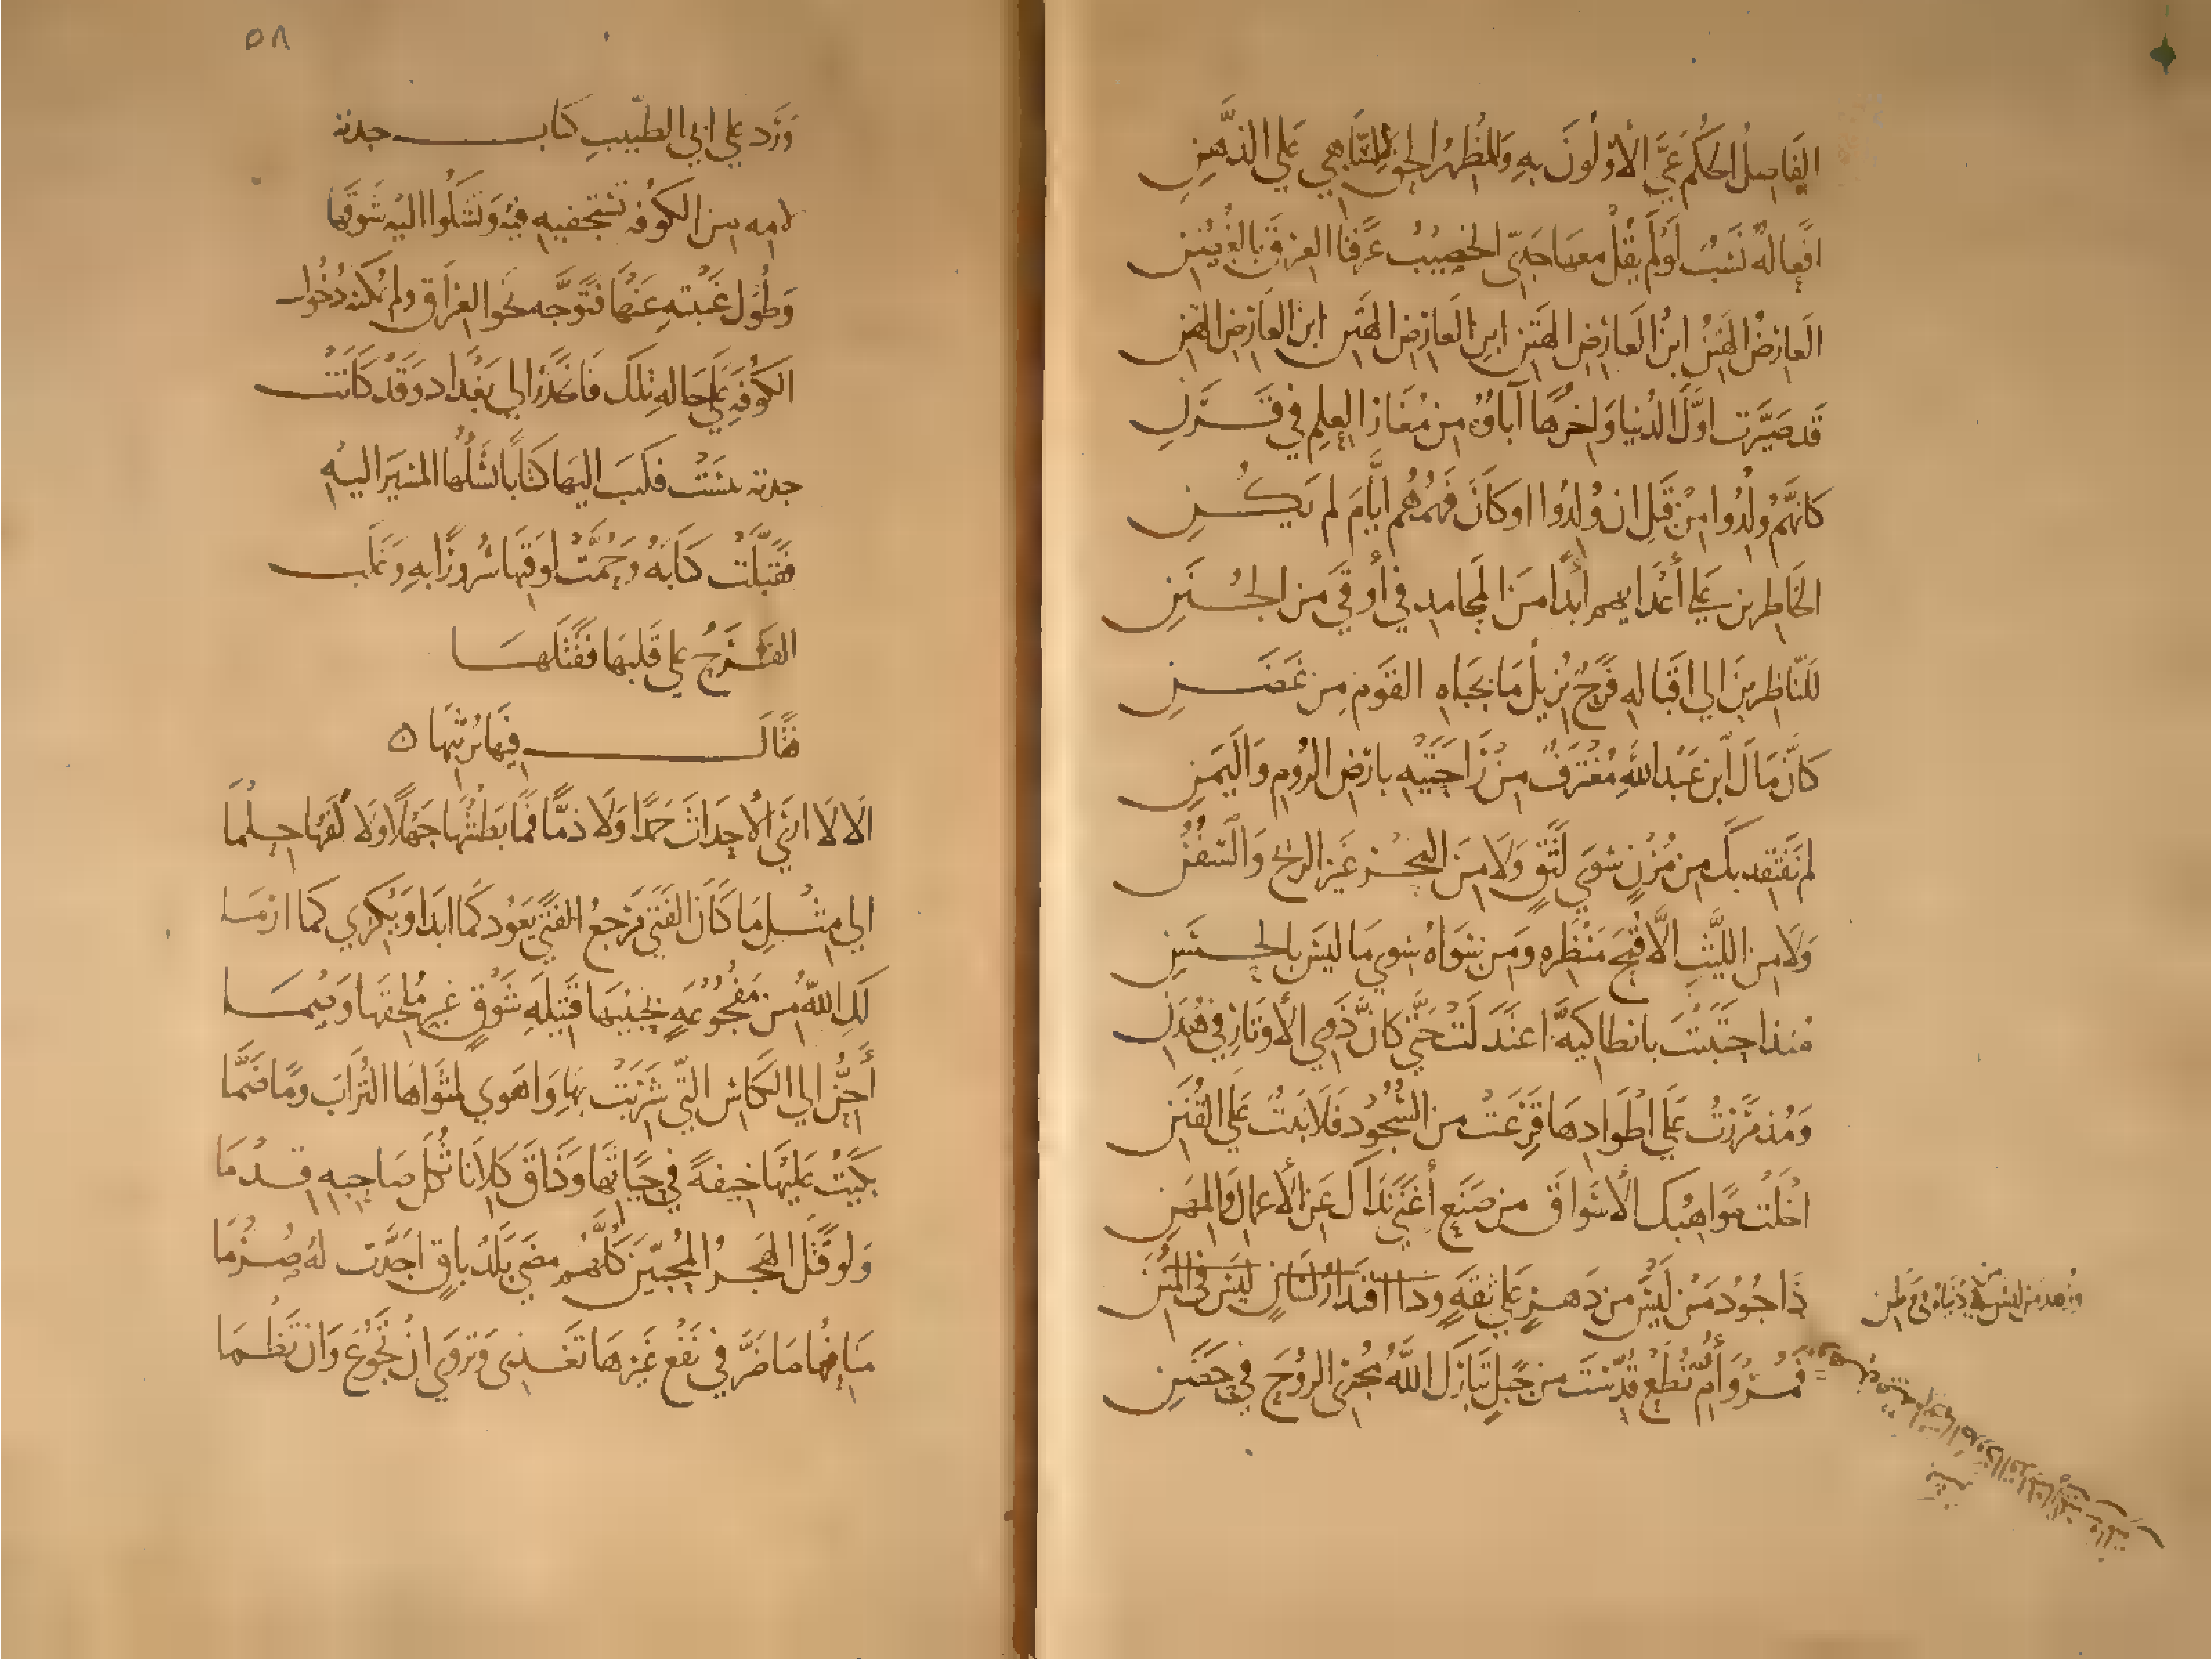 الفَاصِلُ الحُكْمَ عَيَّ الأوّلُونَ بِهِ وَالمُظهِرُ الحقَّ للسَّاهي عَلي الذَّهِنِ
افعَالُهُ نَسَبٌ لَوْ لَم يَقُلْ معهَا جَدّي الخصِيبُ عَرَفنَا العِرقَ بالغُصُنِ
العَارِضُ الهَتِنُ ابنُ العَارِضِ الهَتِنِ ابنِ العَارِضِ الهَتِنِ ابنِ العَارِضِ الهَتِنِ
قَد صَيَّرَت اوَّلَ الدُنيا وَاخِرَهَا آبَاؤُهُ مِن مُغَارِ العِلمِ في قَرَنِ
كَانَهُّم وُلِدُوا مِنْ قَبلِ ان وُلِدُوا او كَانَ فَهمُهُم ايَّامَ لم يَكُنِ
الخَاطِرِينَ عَلي أعْدَايهِم أبَداً مِنَ المَحَامِدِ في أوقَي مِنَ الجُنَنِ
للنّاظِرِينَ الي اقبَالهِ فَرَحٌ يُزيلُ مَا بجبَاهِ القَومِ مِن غَضَنِ
كَانَّ مَالَ ابنِ عَبْدِ اللهِ مُغتَرَفٌ مِن رَاحَتَيْهِ بارضِ الرُّومِ وَاليَمَنِ
لَم نَفتَقِد بكَ مِن مُزْنٍ سِوَي لَثَقٍ وَلَا مِنَ البَحرِ غَيرَ الريحِ وَالسُّفُنِ
وَلَا مِنَ اللَّيثِ الَّا قُبحَ مَنْظَرِه وَمِن سِوَاهُ سِوي مَا ليسَ بالحَسَنِ
مُنذُ احتَبَيْتَ بانطاكيَّةَ اعتَدَلَتْ حَتَّي كانَّ ذَوِي الأوتَارِ في هُدَنِ
وَمُذ مَرَرْتَ عَلي اطْوَادِهَا قَرِعَتْ مِنَ السُّجُودِ فَلَا نَبتٌ عَلي القُنَنِ
اخْلَتْ مَوَاهِبُكَ الأسْوَاقَ مِن صَنَعٍ أغنَي نَدَاكَ عَنِ الأعمَالِ وَالمِهَنِ
ذَا جُودُ مَنْ لَيْسَ مِن دَهرٍ عَلي ثِقَةٍ وذا اقتدَارُ لسَانٍ ليسَ في المُنَنِ
وَزُهدُ مَن ليسَ مِن دُنيَاهُ في وَطَنِ
فَمُرْ وَأومِ تُطَعْ قُدّستَ مِن جَبَلٍ تَبَارَكَ اللهُ مُجرِي الرُّوحِ في حَضَنِ
٥٨
وَرَد علي ابي الطّيبِ كتاب جدته
لامه من الكوفه تَستجفيهِ فيهِ وَتشكُوا اليهِ شَوقَها
وَطُول غَيْبتهِ عَنهَا فتَوَجَّه نحوَ العِرَاقِ ولم يُمكنه دُخُول
الكُوفَةِ عَلي حَالهِ تلك فَانحدَرَ الي بَغْدَادَ وَقَدْ كَانَتْ
جدته يئسَتْ فكتبَ اليها كتَاباً يسَئَلُها المسيَر اليهِ
فقَبَّلَتْ كتَابَهُ وَحُمَّتْ لوقتِهَا سُرُورًا بهِ وَغَلَب
الفَرَحُ علي قَلبهَا فقَتَلَهَا
فقَالَ فيهَا يرثيهَا ٥
الَا لَا اري الاحدَاثَ حَمدًا وَلَا ذمًّا فمَا بَطشُهَا جَهْلاً وَلَا كفُّها حِلْمَا
الي مِثْلِ مَا كَانَ الفَتَي مَرْجعُ الفَتَي يَعُود كمَا ابدَا وَيُكري كمَا ارمَا
لَكِ اللّهُ مِن مَفْجُوعَةٍ بحبيبهَا قَتيلَةِ شَوْقٍ غيرِ مُلحقهَا وَصْمَا
أحِنُّ الي الكَاسِ التّي شَرِبَتْ بهَا وَاهوَي لمثوَاهَا التُرَابَ ومَا ضَمَّا
بكَيْتُ عَليْهَا خِيفةً في حيَاتهَا وَذَاقَ كِلَانَا ثُكْلَ صَاحِبهِ قِدْمَا
وَلو قَتَلَ الهَجرُ المُحبّينَ كلَّهُم مضَي بَلَدٌ باقٍ اجَدَّت لهُ صُرْمَا
مَنَافِعُهَا مَا ضَرَّ في نَفْعِ غَيرِهَا تَغذي وَتروَي ان تَجُوعَ وَان تَظْمَا